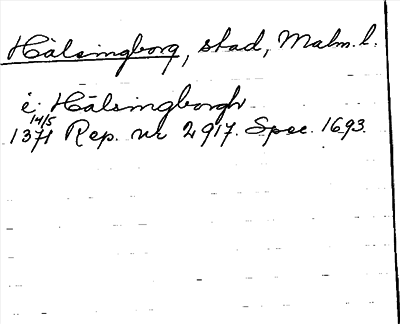 Hälsingborg, stad, Malm. l.
i Hälsingborgh
14/5
1371 Rep. nr 2917. Spec. 1693.